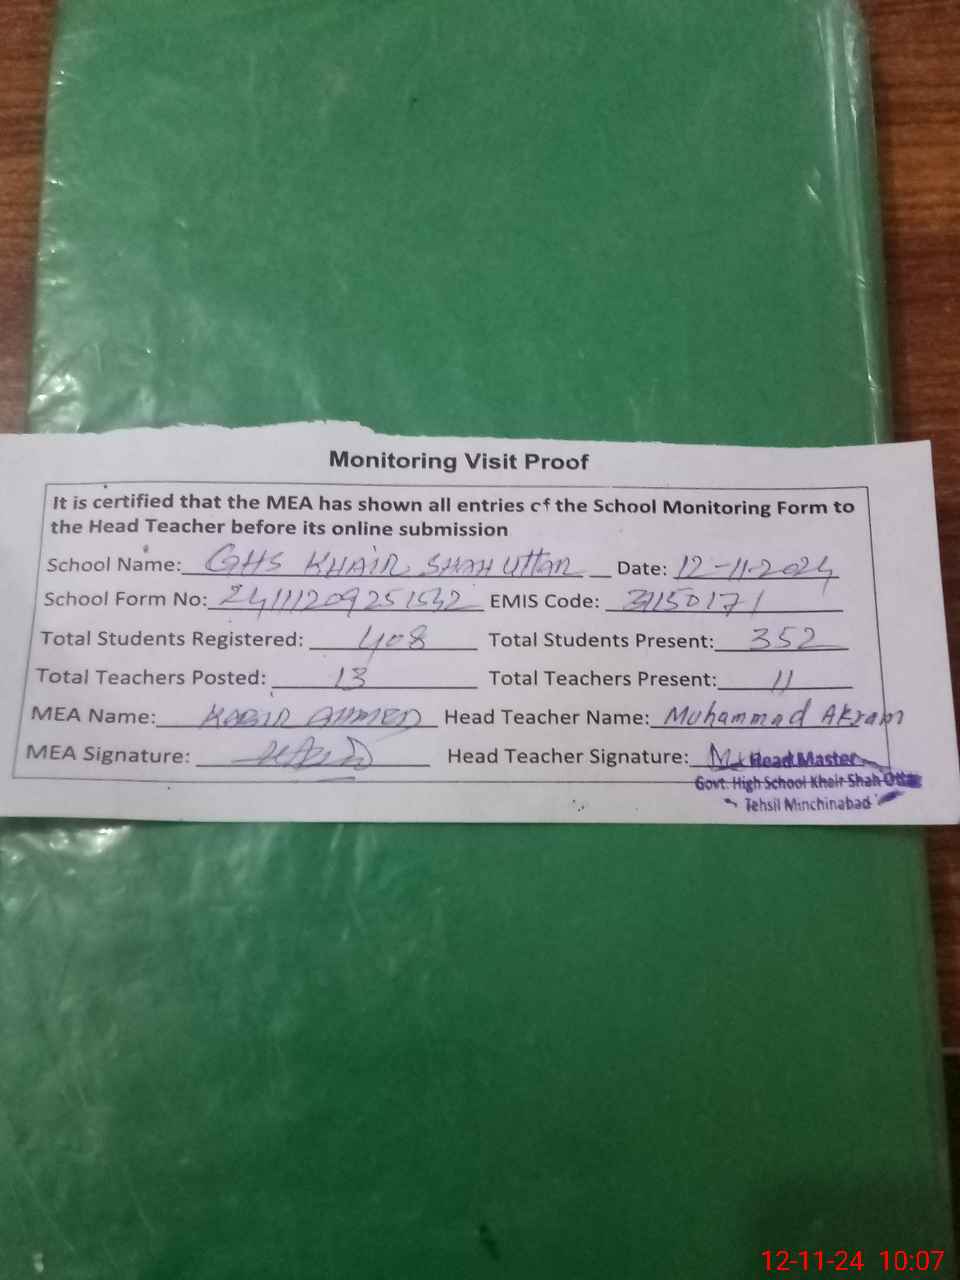 Monitoring Visit Proof
It is certified that the MEA has shown all entries of the School Monitoring Form to
the Head Teacher before its online submission
School Name: GHS KHAIR SHAH Uttar Date: 12-11-2024
School Form No: 24111209251542 EMIS Code: 31150171
Total Students Registered: 408 Total Students Present: 352
Total Teachers Posted: 13 Total Teachers Present: 11
MEA Name: KABIR AHMED Head Teacher Name: Muhammad Akram
MEA Signature: Head Teacher Signature:
Head Master
Govt. High School Khair Shah Ottar
Tehsil Minchinabad
12-11-24 10:07